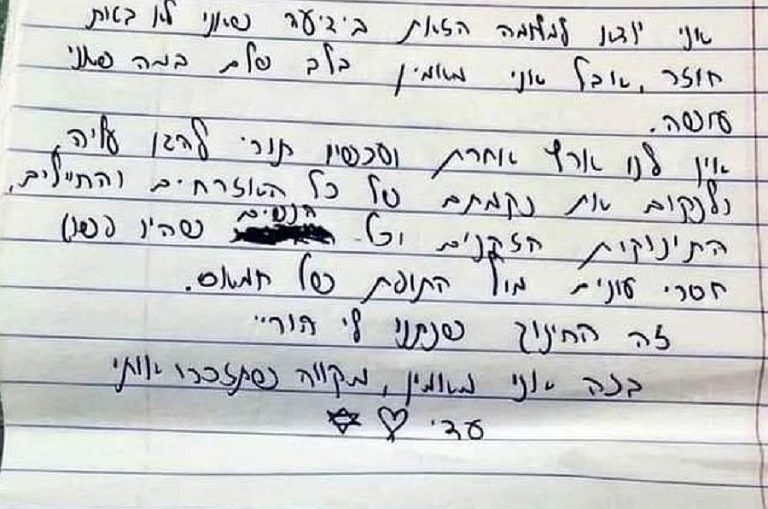 אני יוצא למלחמה הזאת בידיעה שאני לא בטוח
חוזר, אבל אני מאמין בלב שלם במה שאני
עושה.
אין לנו ארץ אחרת ועכשיו תורי להגן עליה,
ולנקום את נקמתם של כל האזרחים והחיילים,
התינוקות הזקנים וכל הנשים שהיו
חסרי עונים מול התופת של חמאס.
זה החינוך שנתנו לי הוריי
בזה אני מאמין, מקווה שתזכרו אותי
עדי ♡ ✡